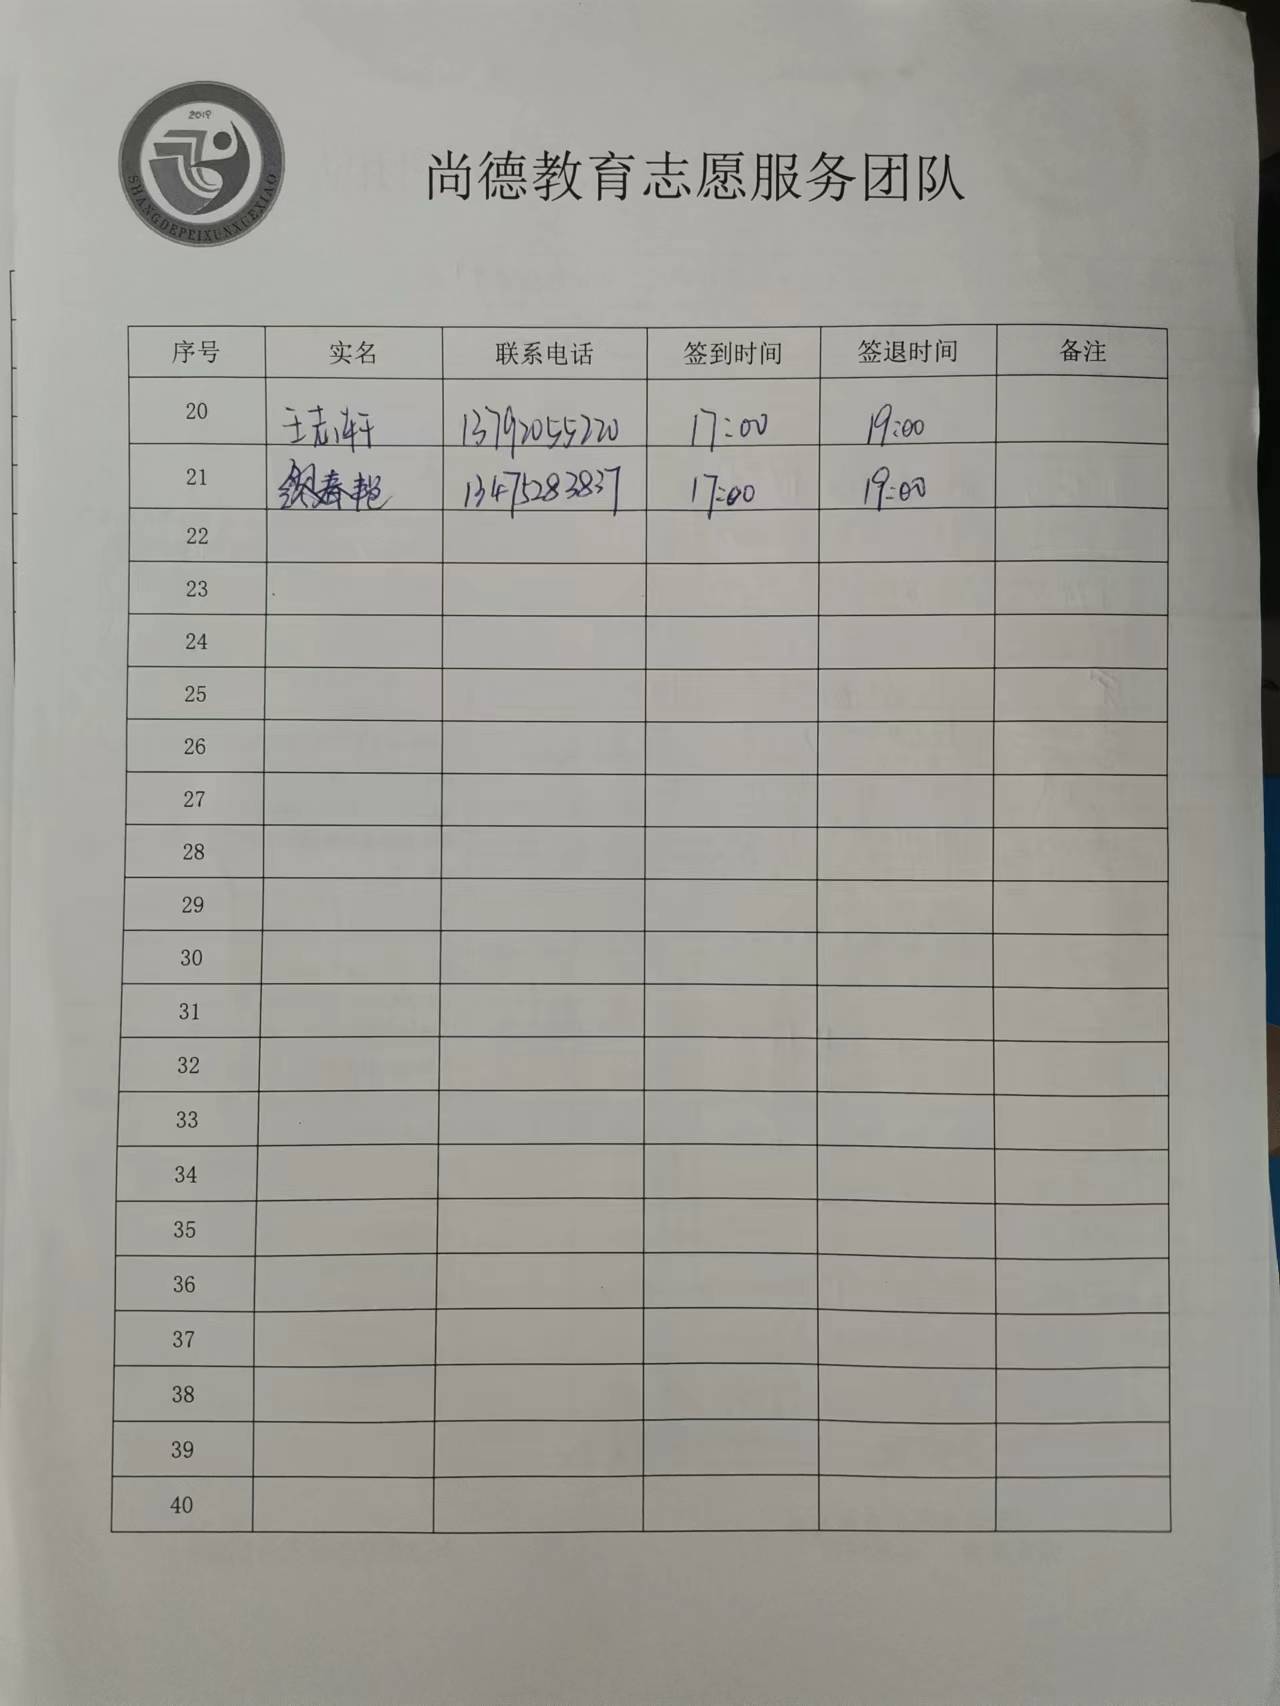 2019
SHANGDEPEIXUNXUEXIAO
尚德教育志愿服务团队
序号 实名 联系电话 签到时间 签退时间 备注
20 王志轩 13792055220 17:00 19:00
21 春艳 13475283837 17:00 19:00
22
23
24
25
26
27
28
29
30
31
32
33
34
35
36
37
38
39
40